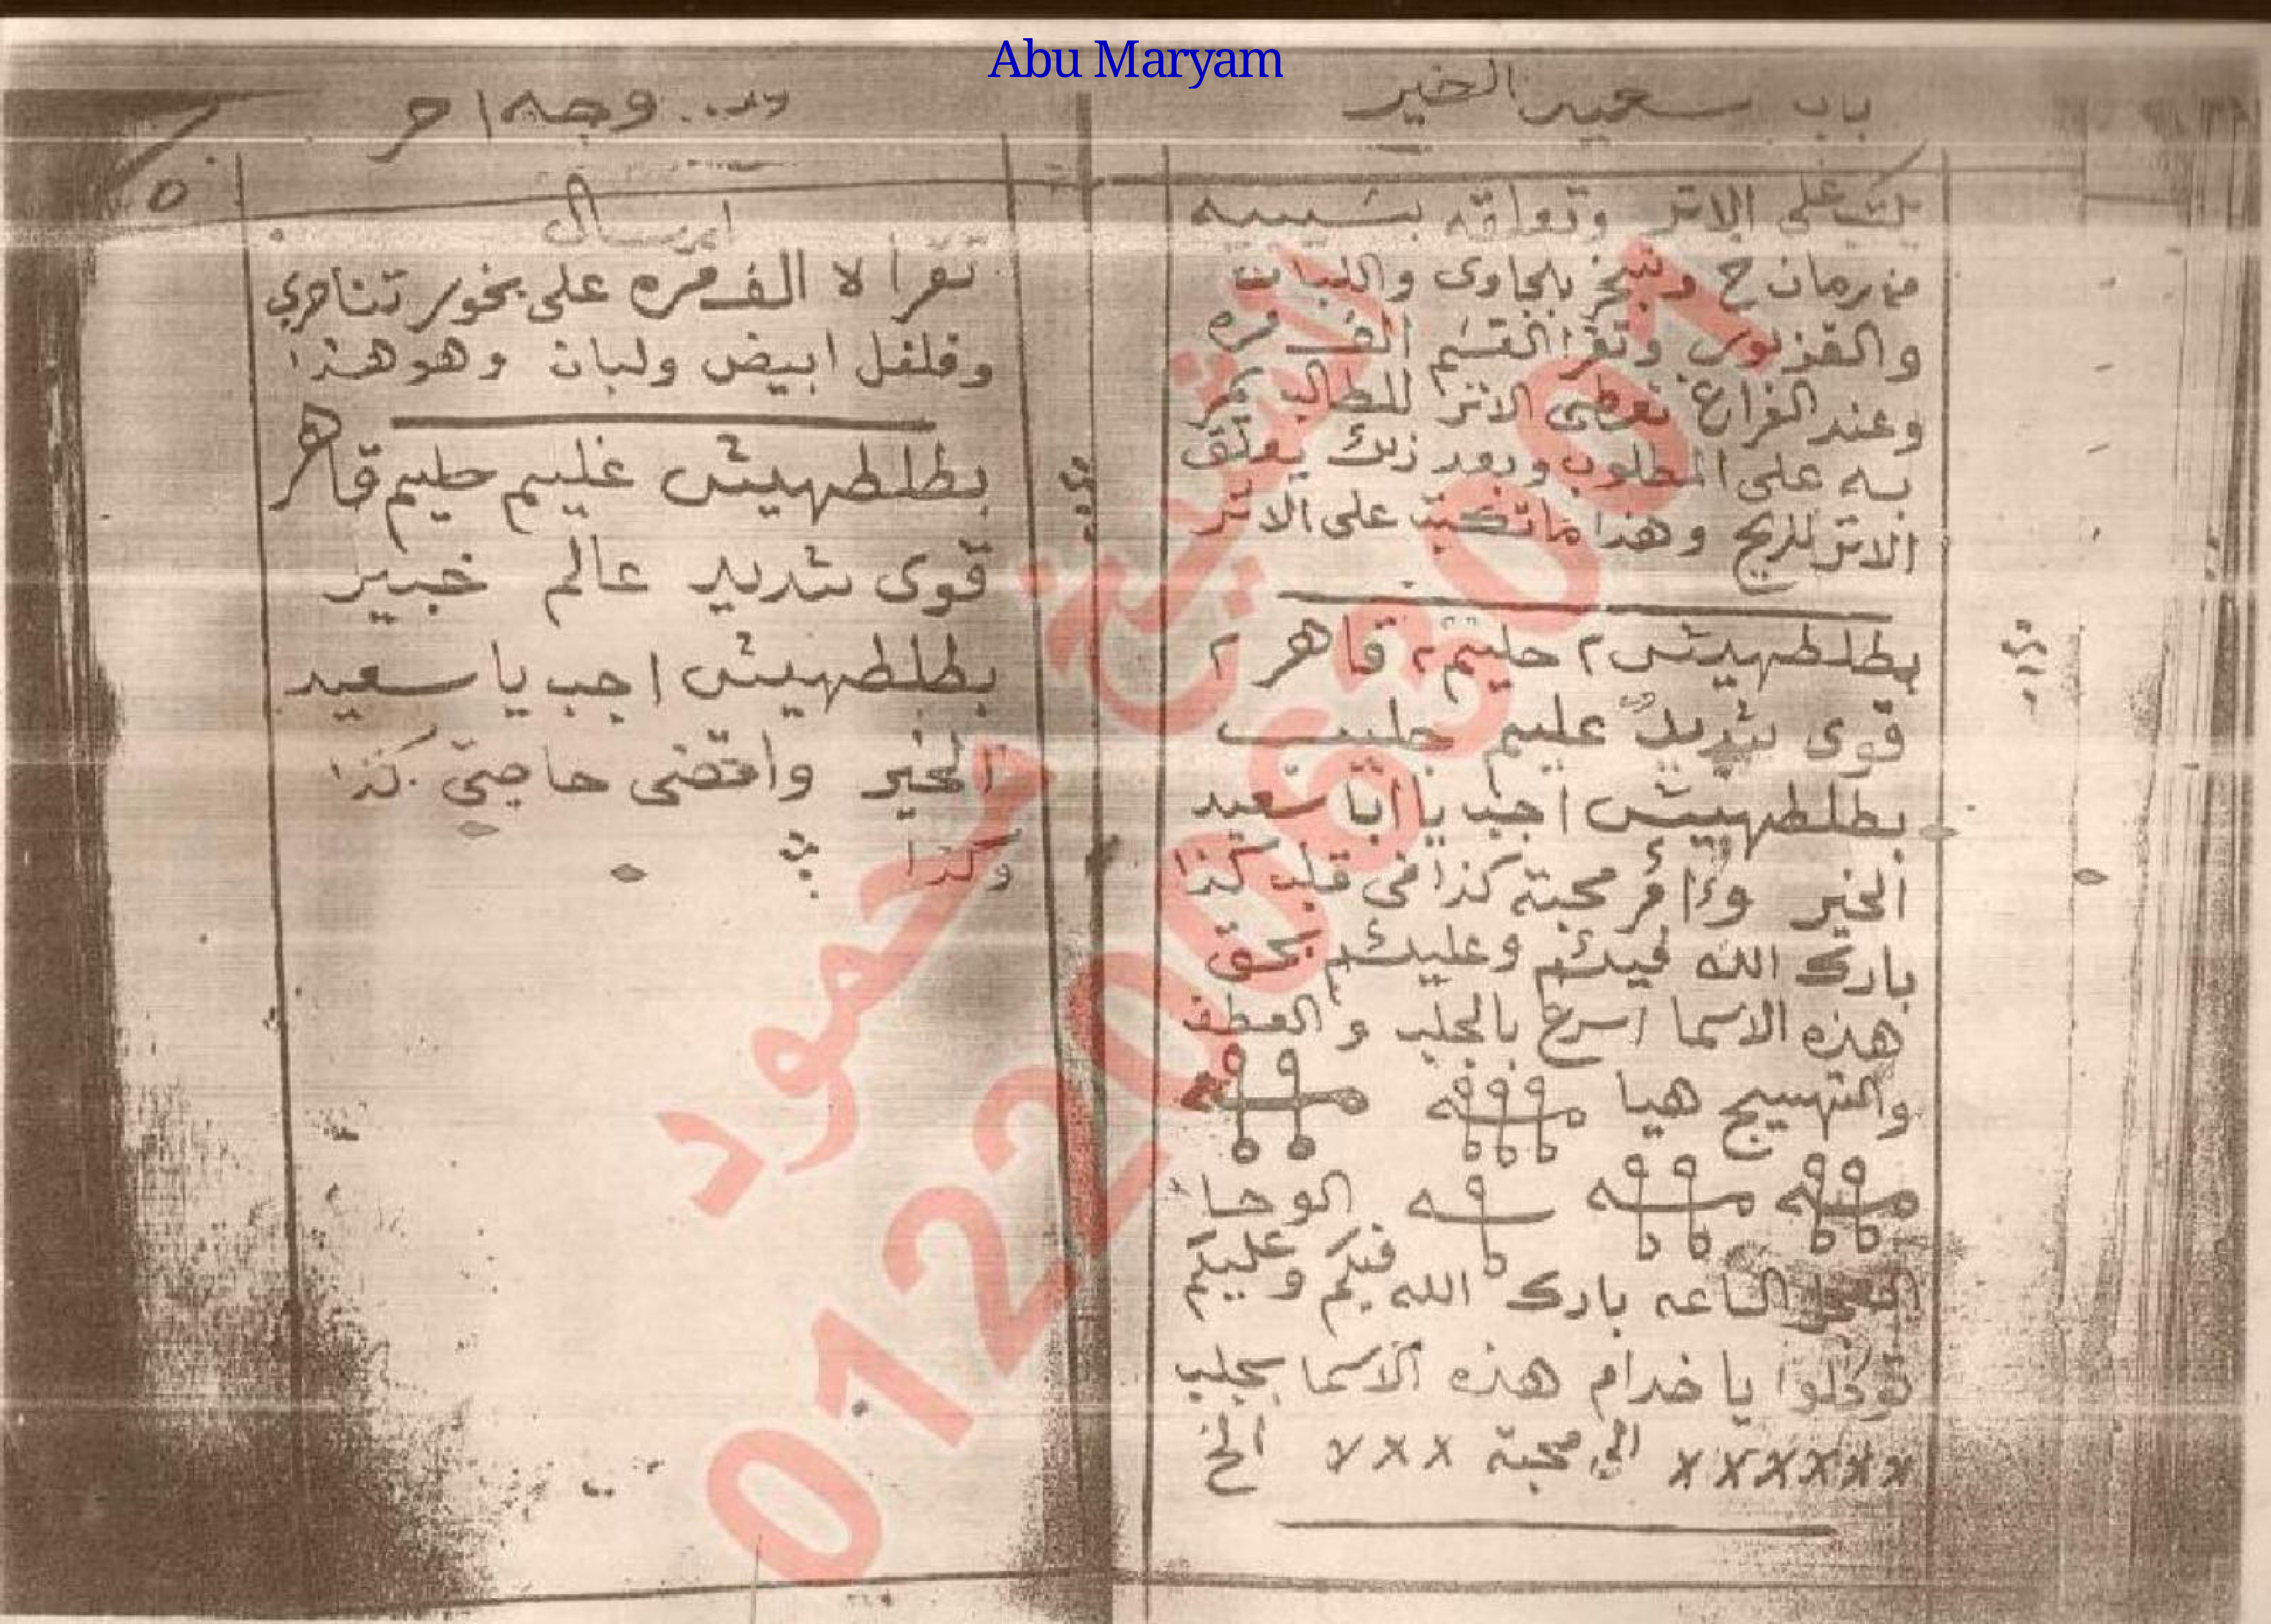 Abu Maryam
باب سعيد الخير
يكتب على الاتر وتعلقه بشيبه
من رمان ح وتبخر بلجاوى واللبان
والقزبور وتقرا القسم الف مره
وعند الفراغ تعطى الاتر للطالب يمر
به على المطلوب وبعد ذلك يعلق
الاتر للريح وهذا ما تكتب على الاتر
بطلطهيش ٢ حليم ٢ قاهر ٢
قوى شديد عليم جليب
بطلطهيش اجب يا ابا سعيد
الخير محبة كذا فى قلب كذا
بارك الله فيكم وعليكم بحق
هذه الاسما اسرع بالجلب والعطف
والتهييج هيا
الوحا
الساعه بارك الله فيكم وعليكم
توكلوا يا خدام هذه الاسما بجلب
×××××× الى محبة ××× الخ
وجه اخر
٥
ارسال
تقرا لا الف مره على بخور تناصري
وفلفل ابيض ولبان وهو هذا
بطلطهيش عليم حليم قاهر
قوى شديد عالم خبير
بطلطهيش اجب يا سعيد
الخير واقضى حاجتى كذا
وكذا
الشيخ محمود
01220063001